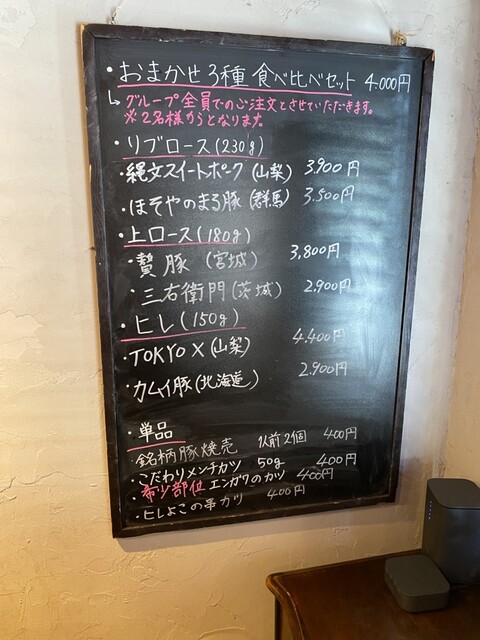 ・おまかせ3種 食べ比べセット 4.000円
↳グループ全員でのご注文とさせていただきます。
※2名様からとなります。
・リブロース(230g)
・縄文スイートポーク(山梨) 3.900円
・ほそやのまる豚(群馬) 3.500円
・上ロース(180g)
・贅豚(宮城) 3,800円
・三右衛門(茨城) 2.900円
・ヒレ(150g)
・TOKYO X(山梨) 4.400円
・カムイ豚(北海道) 2.900円
・単品
・銘柄豚焼売 1人前2個 400円
・こだわりメンチカツ 50g 400円
・希少部位 エンガワのカツ 400円
・ヒレよこの串カツ 400円